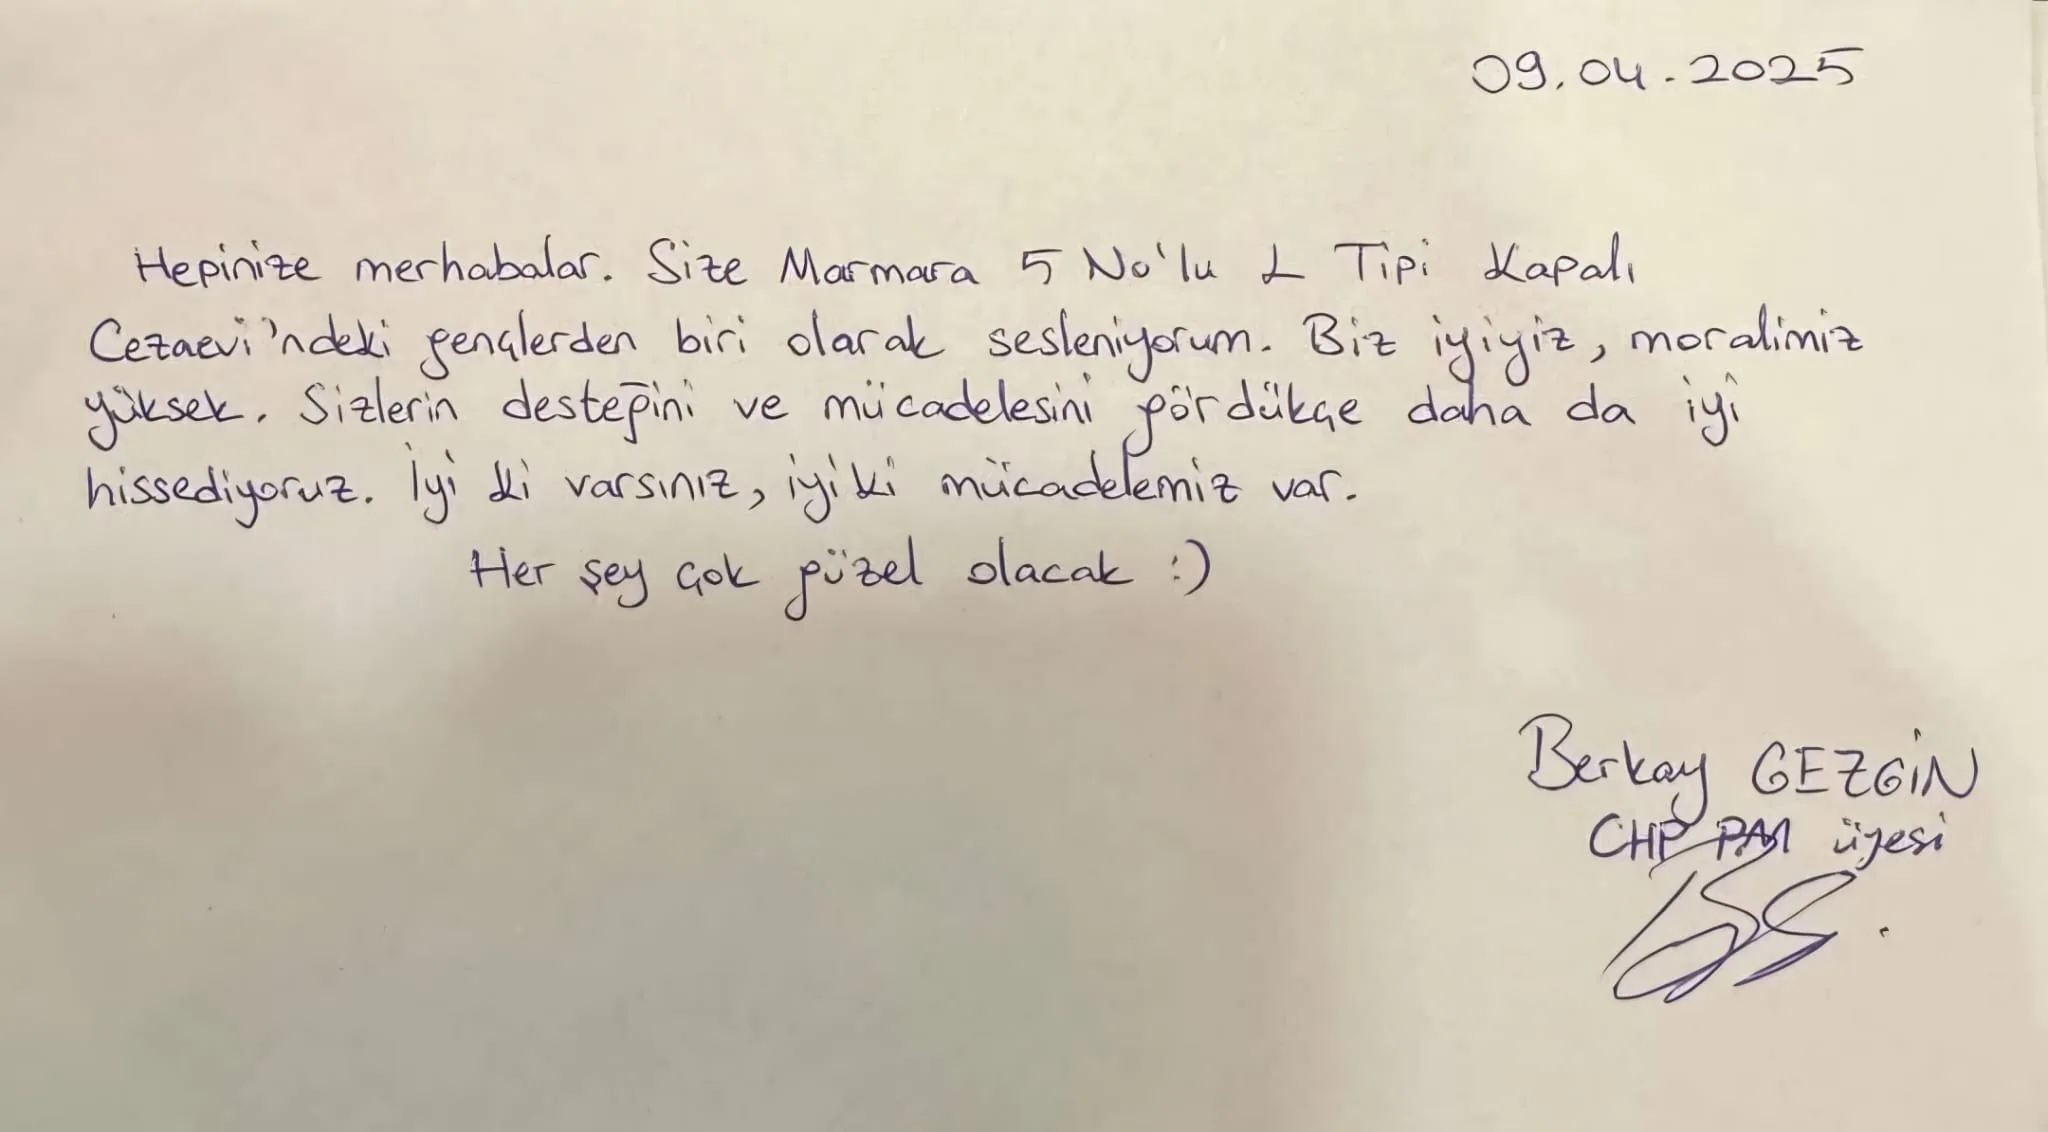 09.04.2025
Hepinize merhabalar. Size Marmara 5 No'lu L Tipi Kapalı
Cezaevi'ndeki gençlerden biri olarak sesleniyorum. Biz iyiyiz, moralimiz
yüksek. Sizlerin desteğini ve mücadelesini gördükçe daha da iyi
hissediyoruz. İyi ki varsınız, iyi ki mücadelemiz var.
Her şey çok güzel olacak :)
Berkay GEZGİN
CHP PM üyesi